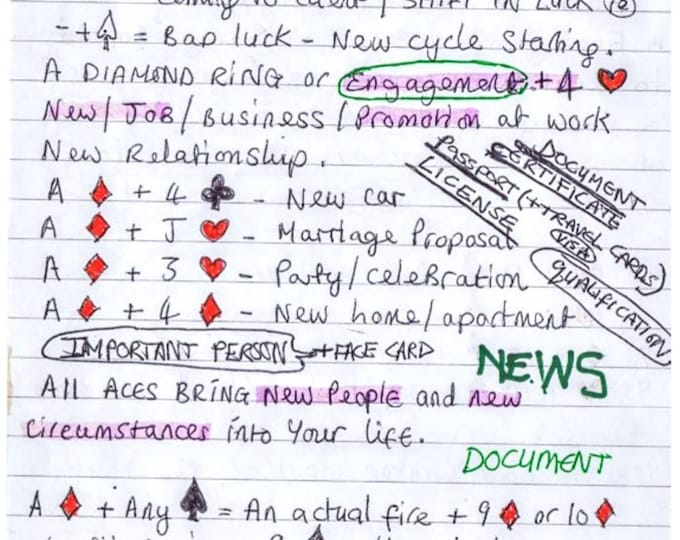 - + ♠ = Bad luck - New cycle starting.
A DIAMOND RING or Engagement + 4 ♥
New / JOB / Business / Promotion at work
New Relationship.
DOCUMENT
CERTIFICATE
PASSPORT (+TRAVEL CARDS)
LICENSE
VISA
QUALIFICATION
A ♦ + 4 ♣ - New car
A ♦ + J ♥ - Marriage Proposal
A ♦ + 3 ♥ - Party/celeBration
A ♦ + 4 ♦ - New home/apartment
IMPORTANT PERSON +FACE CARD
NEWS
All ACES BRING New People and new
circumstances into Your life.
DOCUMENT
A ♦ + Any ♠ = An actual fire + 9 ♦ or 10 ♦